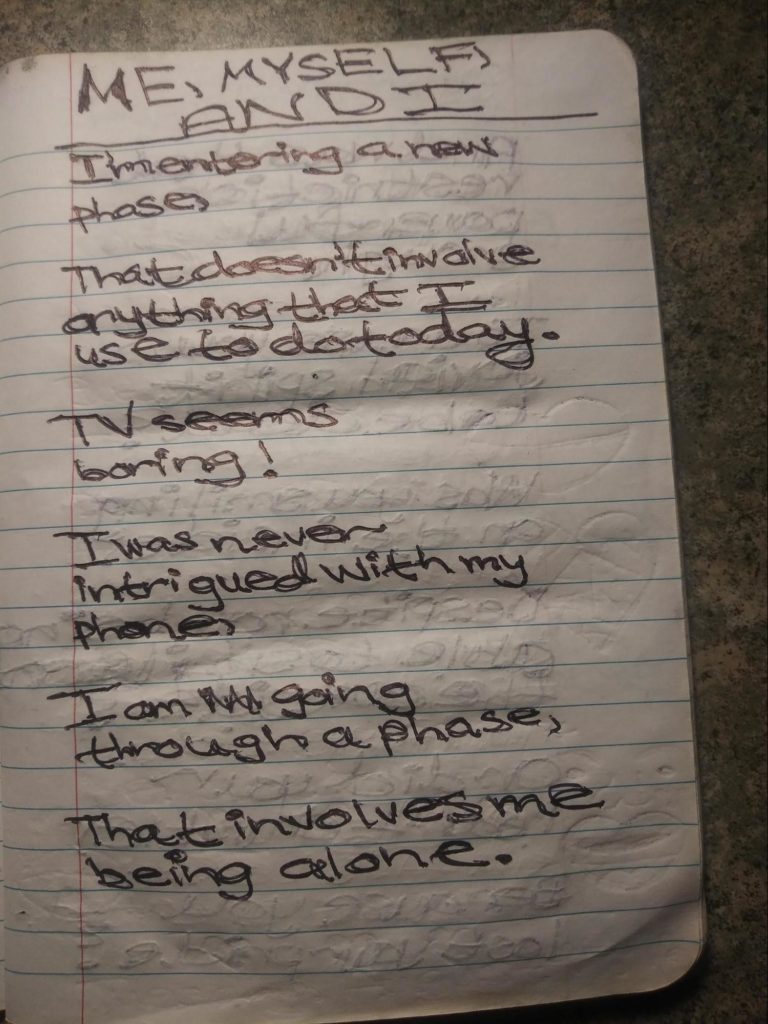 ME, MYSELF,
AND I
I'm entering a new
phase,
That doesn't involve
anything that I
use to do today.
TV seems
boring!
I was never
intrigued with my
phone,
I am going
through a phase,
That involves me
being alone.